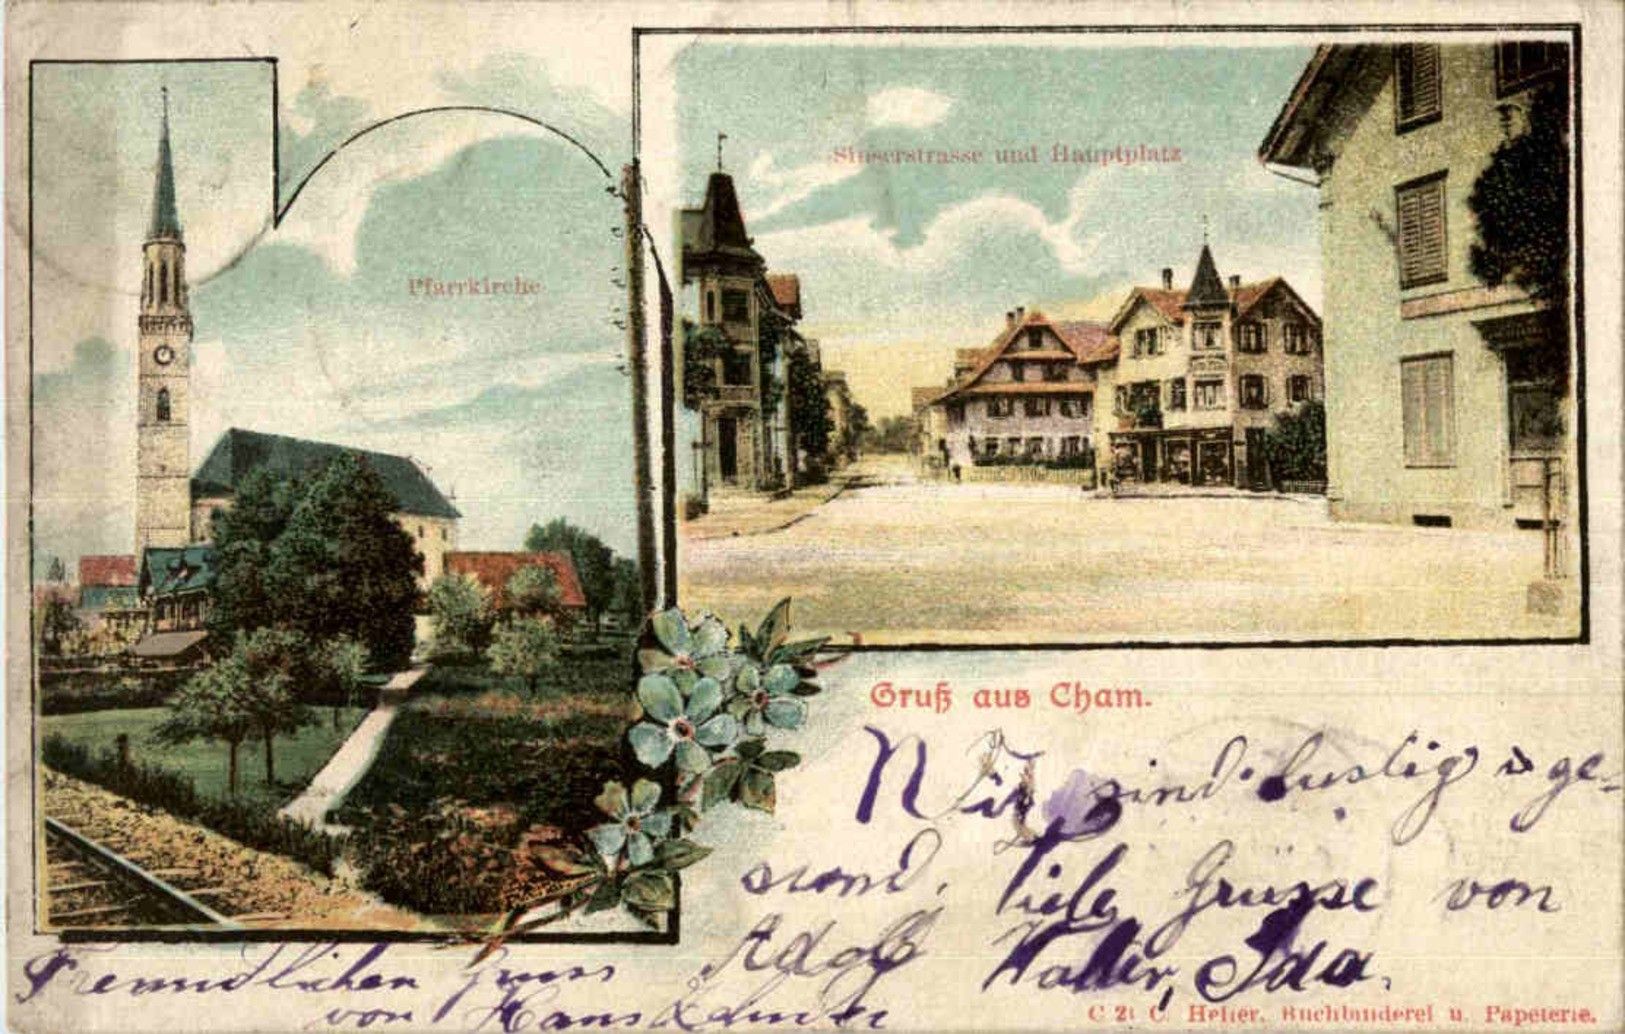 Pfarrkirche
Sinserstrasse und Hauptplatz
Gruß aus Cham.
Wir sind lustig & ge-
sund. Viele Grüsse von
Adolf Ida.
Freundlichen Gruss
von Hans
Buchbinderei u. Papeterie.